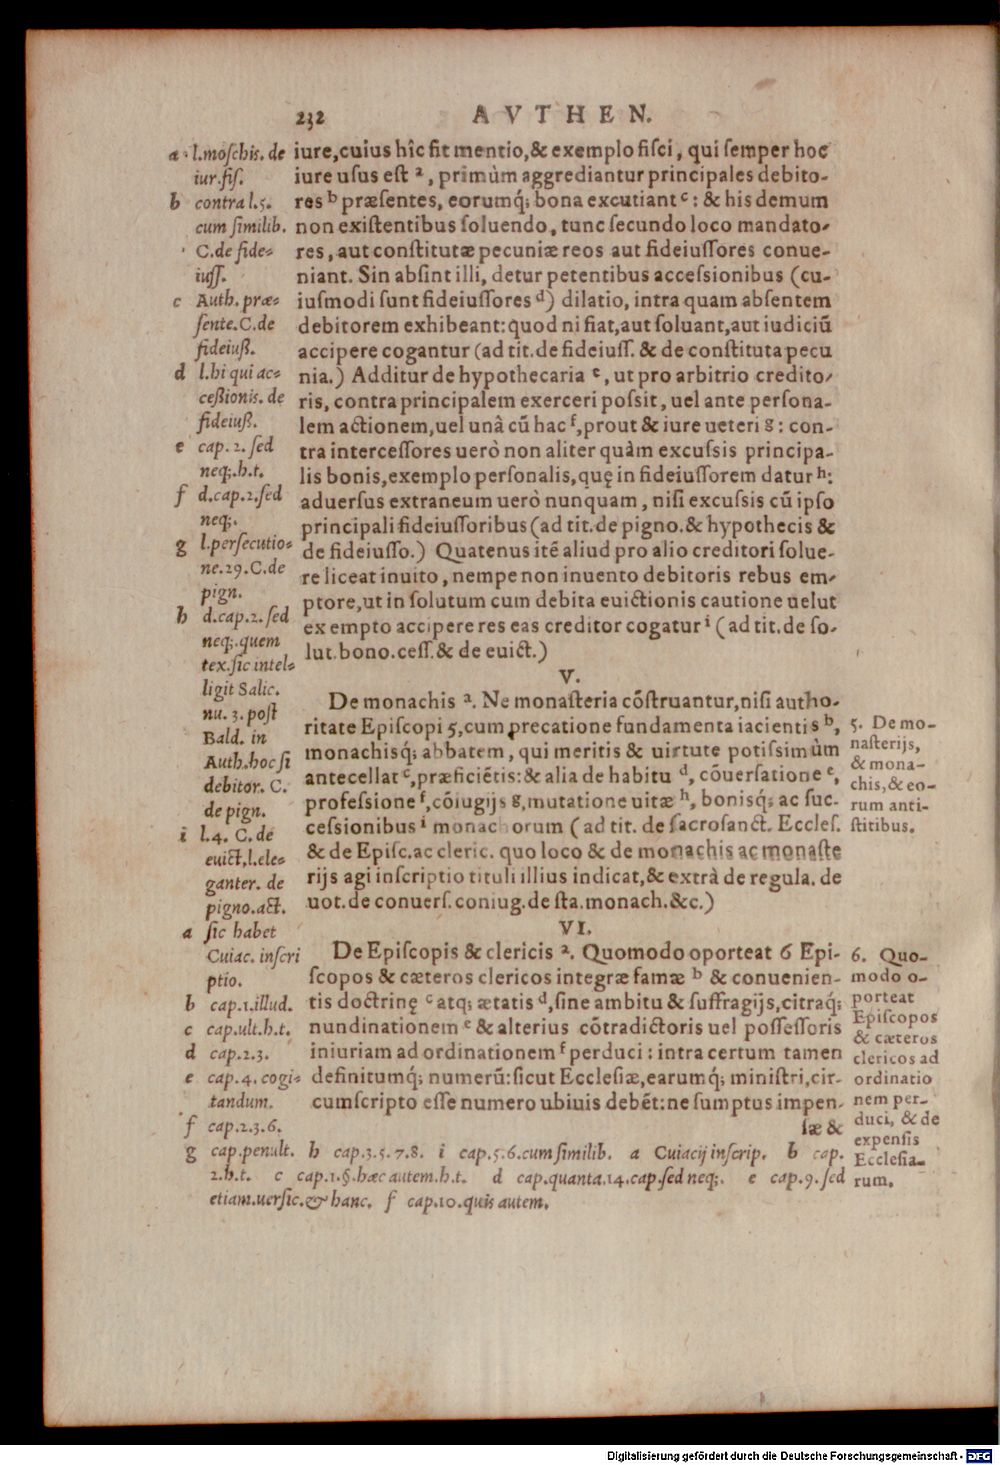 232 AVTHEN.
iure,cuius hîc fit mentio,& exemplo fisci, qui semper hoc
iure usus est ª, primùm aggrediantur principales debito-
res ᵇ præsentes, eorumq́; bona excutiant ᶜ: & his demum
non existentibus soluendo, tunc secundo loco mandato-
res, aut constitutæ pecuniæ reos aut fideiussores conue-
niant. Sin absint illi, detur petentibus accessionibus (cu-
iusmodi sunt fideiussores ᵈ) dilatio, intra quam absentem
debitorem exhibeant: quod ni fiat,aut soluant,aut iudiciū
accipere cogantur (ad tit. de fideiuss. & de constituta pecu
nia.) Additur de hypothecaria ᵉ, ut pro arbitrio credito-
ris, contra principalem exerceri possit, uel ante persona-
lem actionem,uel unà cū hac ᶠ,prout & iure ueteri g: con-
tra intercessores uerò non aliter quàm excussis principa-
lis bonis,exemplo personalis,quę in fideiussorem datur ʰ:
aduersus extraneum uerò nunquam, nisi excussis cū ipso
principali fideiussoribus (ad tit. de pigno. & hypothecis &
de fideiusso.) Quatenus itē aliud pro alio creditori solue-
re liceat inuito, nempe non inuento debitoris rebus em-
ptore,ut in solutum cum debita euictionis cautione uelut
ex empto accipere res eas creditor cogatur ⁱ (ad tit. de so-
lut. bono. cess. & de euict.)
V.
De monachis ª. Ne monasteria cōstruantur,nisi autho-
ritate Episcopi 5,cum precatione fundamenta iacientis ᵇ,
monachisq́; abbatem, qui meritis & uirtute potissimùm
antecellat ᶜ,præficiētis: & alia de habitu ᵈ, cōuersatione ᵉ,
professione ᶠ,cōiugijs g,mutatione uitæ ʰ, bonisq́; ac suc-
cessionibus ⁱ monachorum (ad tit. de sacrosanct. Eccles.
& de Episc. ac cleric. quo loco & de monachis ac monaste
rijs agi inscriptio tituli illius indicat,& extrà de regula. de
uot. de conuers. coniug. de sta. monach. &c.)
VI.
De Episcopis & clericis ª. Quomodo oporteat 6 Epi-
scopos & cæteros clericos integræ famæ ᵇ & conuenien-
tis doctrinę ᶜ atq; ætatis ᵈ,sine ambitu & suffragijs,citraq́;
nundinationem ᵉ & alterius cōtradictoris uel possessoris
iniuriam ad ordinationem ᶠ perduci: intra certum tamen
definitumq́; numerū: sicut Ecclesiæ,earumq́; ministri,cir-
cumscripto esse numero ubiuis debēt: ne sumptus impen-
sæ &
a l.moschis. de
iur.fis.
b contra l.5.
cum similib.
C.de fide-
iuss.
c Auth. præ-
sente.C.de
fideiuß.
d l.hi qui ac-
ceßionis. de
fideiuß.
e cap. 2. sed
neq;.h.t.
f d.cap.2.sed
neq;.
g l.persecutio-
ne.29.C.de
pign.
h d.cap.2.sed
neq;.quem
tex.sic intel-
ligit Salic.
nu. 3. post
Bald. in
Auth.hoc si
debitor. C.
de pign.
i l.4. C. de
euict,l.ele-
ganter. de
pigno.act.
a sic habet
Cuiac. inscri
ptio.
b cap.1.illud.
c cap.ult.h.t.
d cap.2.3.
e cap.4. cogi-
tandum.
f cap.2.3.6.
g cap.penult. h cap.3.5.7.8. i cap.5.6.cum similib. a Cuiacij inscrip. b cap.
2.h.t. c cap.1.§.hæc autem.h.t. d cap.quanta.14.cap.sed neq;. e cap.9.sed
etiam.uersic.& hanc. f cap.10.quis autem.
5. De mo-
nasterijs,
& mona-
chis,& eo-
rum anti-
stitibus.
6. Quo-
modo o-
porteat
Episcopos
& cæteros
clericos ad
ordinatio
nem per-
duci, & de
expensis
Ecclesia-
rum.
Digitalisierung gefördert durch die Deutsche Forschungsgemeinschaft - DFG